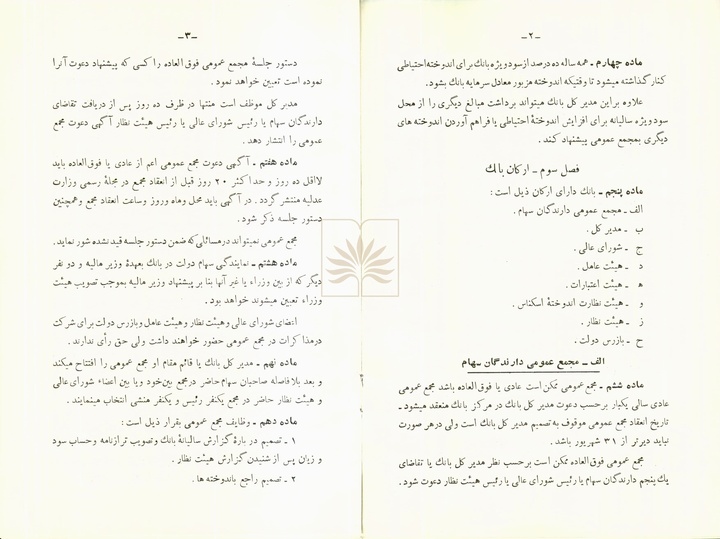 ـ ۲ ـ
ماده چهارم ـ همه ساله ده درصد از سود ویژه بانک برای اندوخته احتیاطی
کنار گذاشته میشود تا وقتیکه اندوخته مزبور معادل سرمایه بانک بشود.
علاوه بر این مدیر کل بانک میتواند برداشت مبالغ دیگری را از محل
سود ویژه سالیانه برای افزایش اندوختهٔ احتیاطی یا فراهم آوردن اندوخته های
دیگری بمجمع عمومی پیشنهاد کند.
فصل سوم ـ ارکان بانک
ماده پنجم ـ بانک دارای ارکان ذیل است:
الف ـ مجمع عمومی دارندگان سهام.
ب ـ مدیر کل.
ج ـ شورای عالی.
د ـ هیئت عامل.
ه ـ هیئت اعتبارات.
و ـ هیئت نظارت اندوختهٔ اسکناس.
ز ـ هیئت نظار.
ح ـ بازرس دولت.
الف ـ مجمع عمومی دارندگان سهام
ماده ششم ـ مجمع عمومی ممکن است عادی یا فوق العاده باشد مجمع عمومی
عادی سالی یکبار بر حسب دعوت مدیر کل بانک در مرکز بانک منعقد میشود ـ
تاریخ انعقاد مجمع عمومی موقوف به تصمیم مدیر کل بانک است ولی در هر صورت
نباید دیرتر از ۳۱ شهریور باشد.
مجمع عمومی فوق العاده ممکن است بر حسب نظر مدیر کل بانک یا تقاضای
یک پنجم دارندگان سهام یا رئیس شورای عالی یا رئیس هیئت نظار دعوت شود.
ـ ۳ ـ
دستور جلسهٔ مجمع عمومی فوق العاده را کسی که پیشنهاد دعوت آنرا
نموده است تعیین خواهد نمود.
مدیر کل موظف است منتها در ظرف ده روز پس از دریافت تقاضای
دارندگان سهام یا رئیس شورای عالی یا رئیس هیئت نظار آگهی دعوت مجمع
عمومی را انتشار دهد.
ماده هفتم ـ آگهی دعوت مجمع عمومی اعم از عادی یا فوق العاده باید
لااقل ده روز و حداکثر ۲۰ روز قبل از انعقاد مجمع در مجلهٔ رسمی وزارت
عدلیه منتشر گردد. در آگهی باید محل و ماه و روز و ساعت انعقاد مجمع و همچنین
دستور جلسه ذکر شود.
مجمع عمومی نمیتواند در مسائلی که ضمن دستور جلسه قید نشده شور نماید.
ماده هشتم ـ نمایندگی سهام دولت در بانک بعهدهٔ وزیر مالیه و دو نفر
دیگر که از بین وزراء یا غیر آنها بنا بر پیشنهاد وزیر مالیه بموجب تصویب هیئت
وزراء تعیین میشوند خواهد بود.
اعضای شورای عالی و هیئت نظار و هیئت عامل و بازرس دولت برای شرکت
در مذاکرات در مجمع عمومی حضور خواهند داشت ولی حق رأی ندارند.
ماده نهم ـ مدیر کل بانک یا قائم مقام او مجمع عمومی را افتتاح میکند
و بعد بلافاصله صاحبان سهام حاضر در مجمع بین خود و یا بین اعضاء شورای عالی
و هیئت نظار حاضر در مجمع یکنفر رئیس و یکنفر منشی انتخاب مینمایند.
ماده دهم ـ وظایف مجمع عمومی بقرار ذیل است:
۱ ـ تصمیم در بارهٔ گزارش سالیانهٔ بانک و تصویب ترازنامه و حساب سود
و زیان پس از شنیدن گزارش هیئت نظار.
۲ ـ تصمیم راجع باندوخته ها.